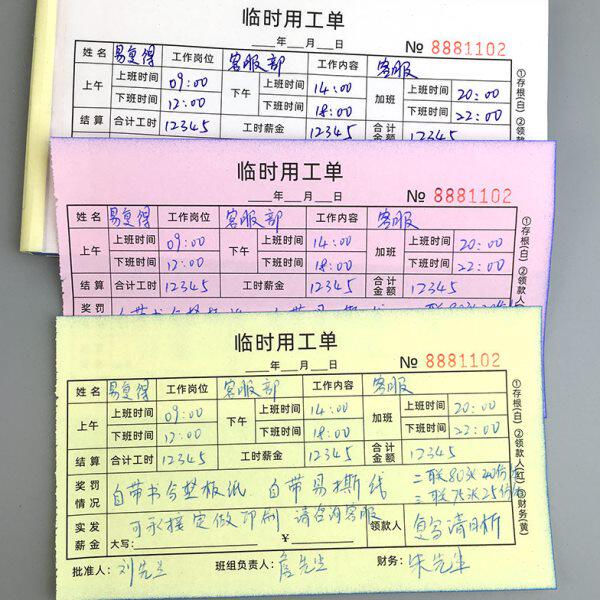 临时用工单
年 月 日 № 8881102
姓名 易复得 工作岗位 客服部 工作内容 客服
上午 上班时间 09:00 下午 上班时间 14:00 加班 上班时间 20:00
下班时间 12:00 下班时间 18:00 下班时间 22:00
结算 合计工时 12345 工时薪金 12345 合计金额 12345
①存根(白) ②领款
临时用工单
年 月 日 № 8881102
姓名 易复得 工作岗位 客服部 工作内容 客服
上午 上班时间 09:00 下午 上班时间 14:00 加班 上班时间 20:00
下班时间 12:00 下班时间 18:00 下班时间 22:00
结算 合计工时 12345 工时薪金 12345 合计金额 12345
奖罚
①存根(白) ②领款人
临时用工单
年 月 日 № 8881102
姓名 易复得 工作岗位 客服部 工作内容 客服
上午 上班时间 09:00 下午 上班时间 14:00 加班 上班时间 20:00
下班时间 12:00 下班时间 18:00 下班时间 22:00
结算 合计工时 12345 工时薪金 12345 合计金额 12345
奖罚情况 自带书写垫板纸 自带易撕线 二联80米40份
三联75米25份
实发薪金 可承接定做印刷 请咨询客服 领款人 复写清晰
大写: ¥
①存根(白) ②领款人(红) ③财务(黄)
批准人: 刘先生 班组负责人: 詹先生 财务: 朱先生